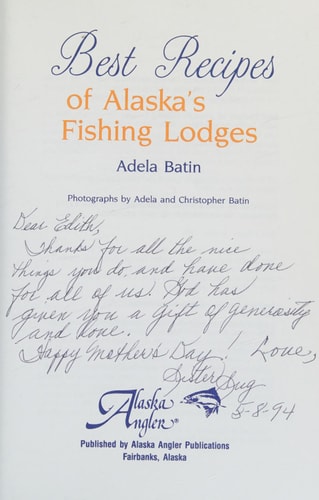 Best Recipes
of Alaska's
Fishing Lodges
Adela Batin
Photographs by Adela and Christopher Batin
Dear Edith,
Thanks for all the nice
things you do and have done
for all of us! God has
given you a gift of generosity
and love.
Happy Mother's Day! Love,
Sister Sug
5-8-94
Alaska
Angler®
Published by Alaska Angler Publications
Fairbanks, Alaska